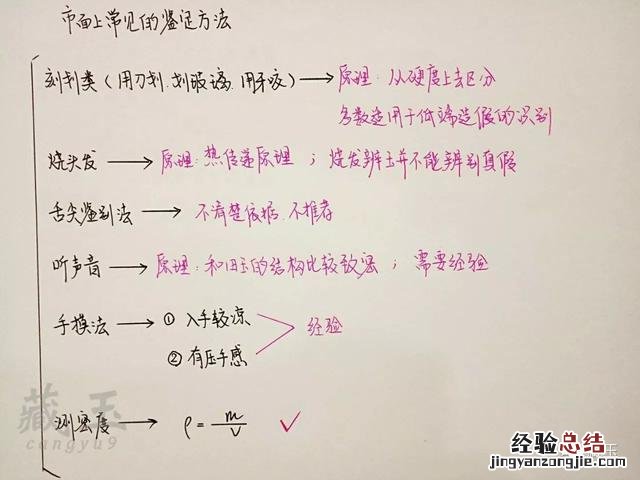 市面上常见的鉴定方法
刻划类（用刀划.划玻璃.用牙咬）→ 原理：从硬度上去区分
多数适用于低端造假的识别
烧头发 → 原理：热传递原理；烧发辨玉并不能辨别真假
舌尖鉴别法 → 不清楚依据.不推荐
听声音 → 原理：和田玉的结构比较致密；需要经验
手摸法 → ① 入手较凉
② 有压手感
经验
测密度 → ρ = m/v ✓
藏玉
cangyu9
经验总结
jingyanzongjie.com